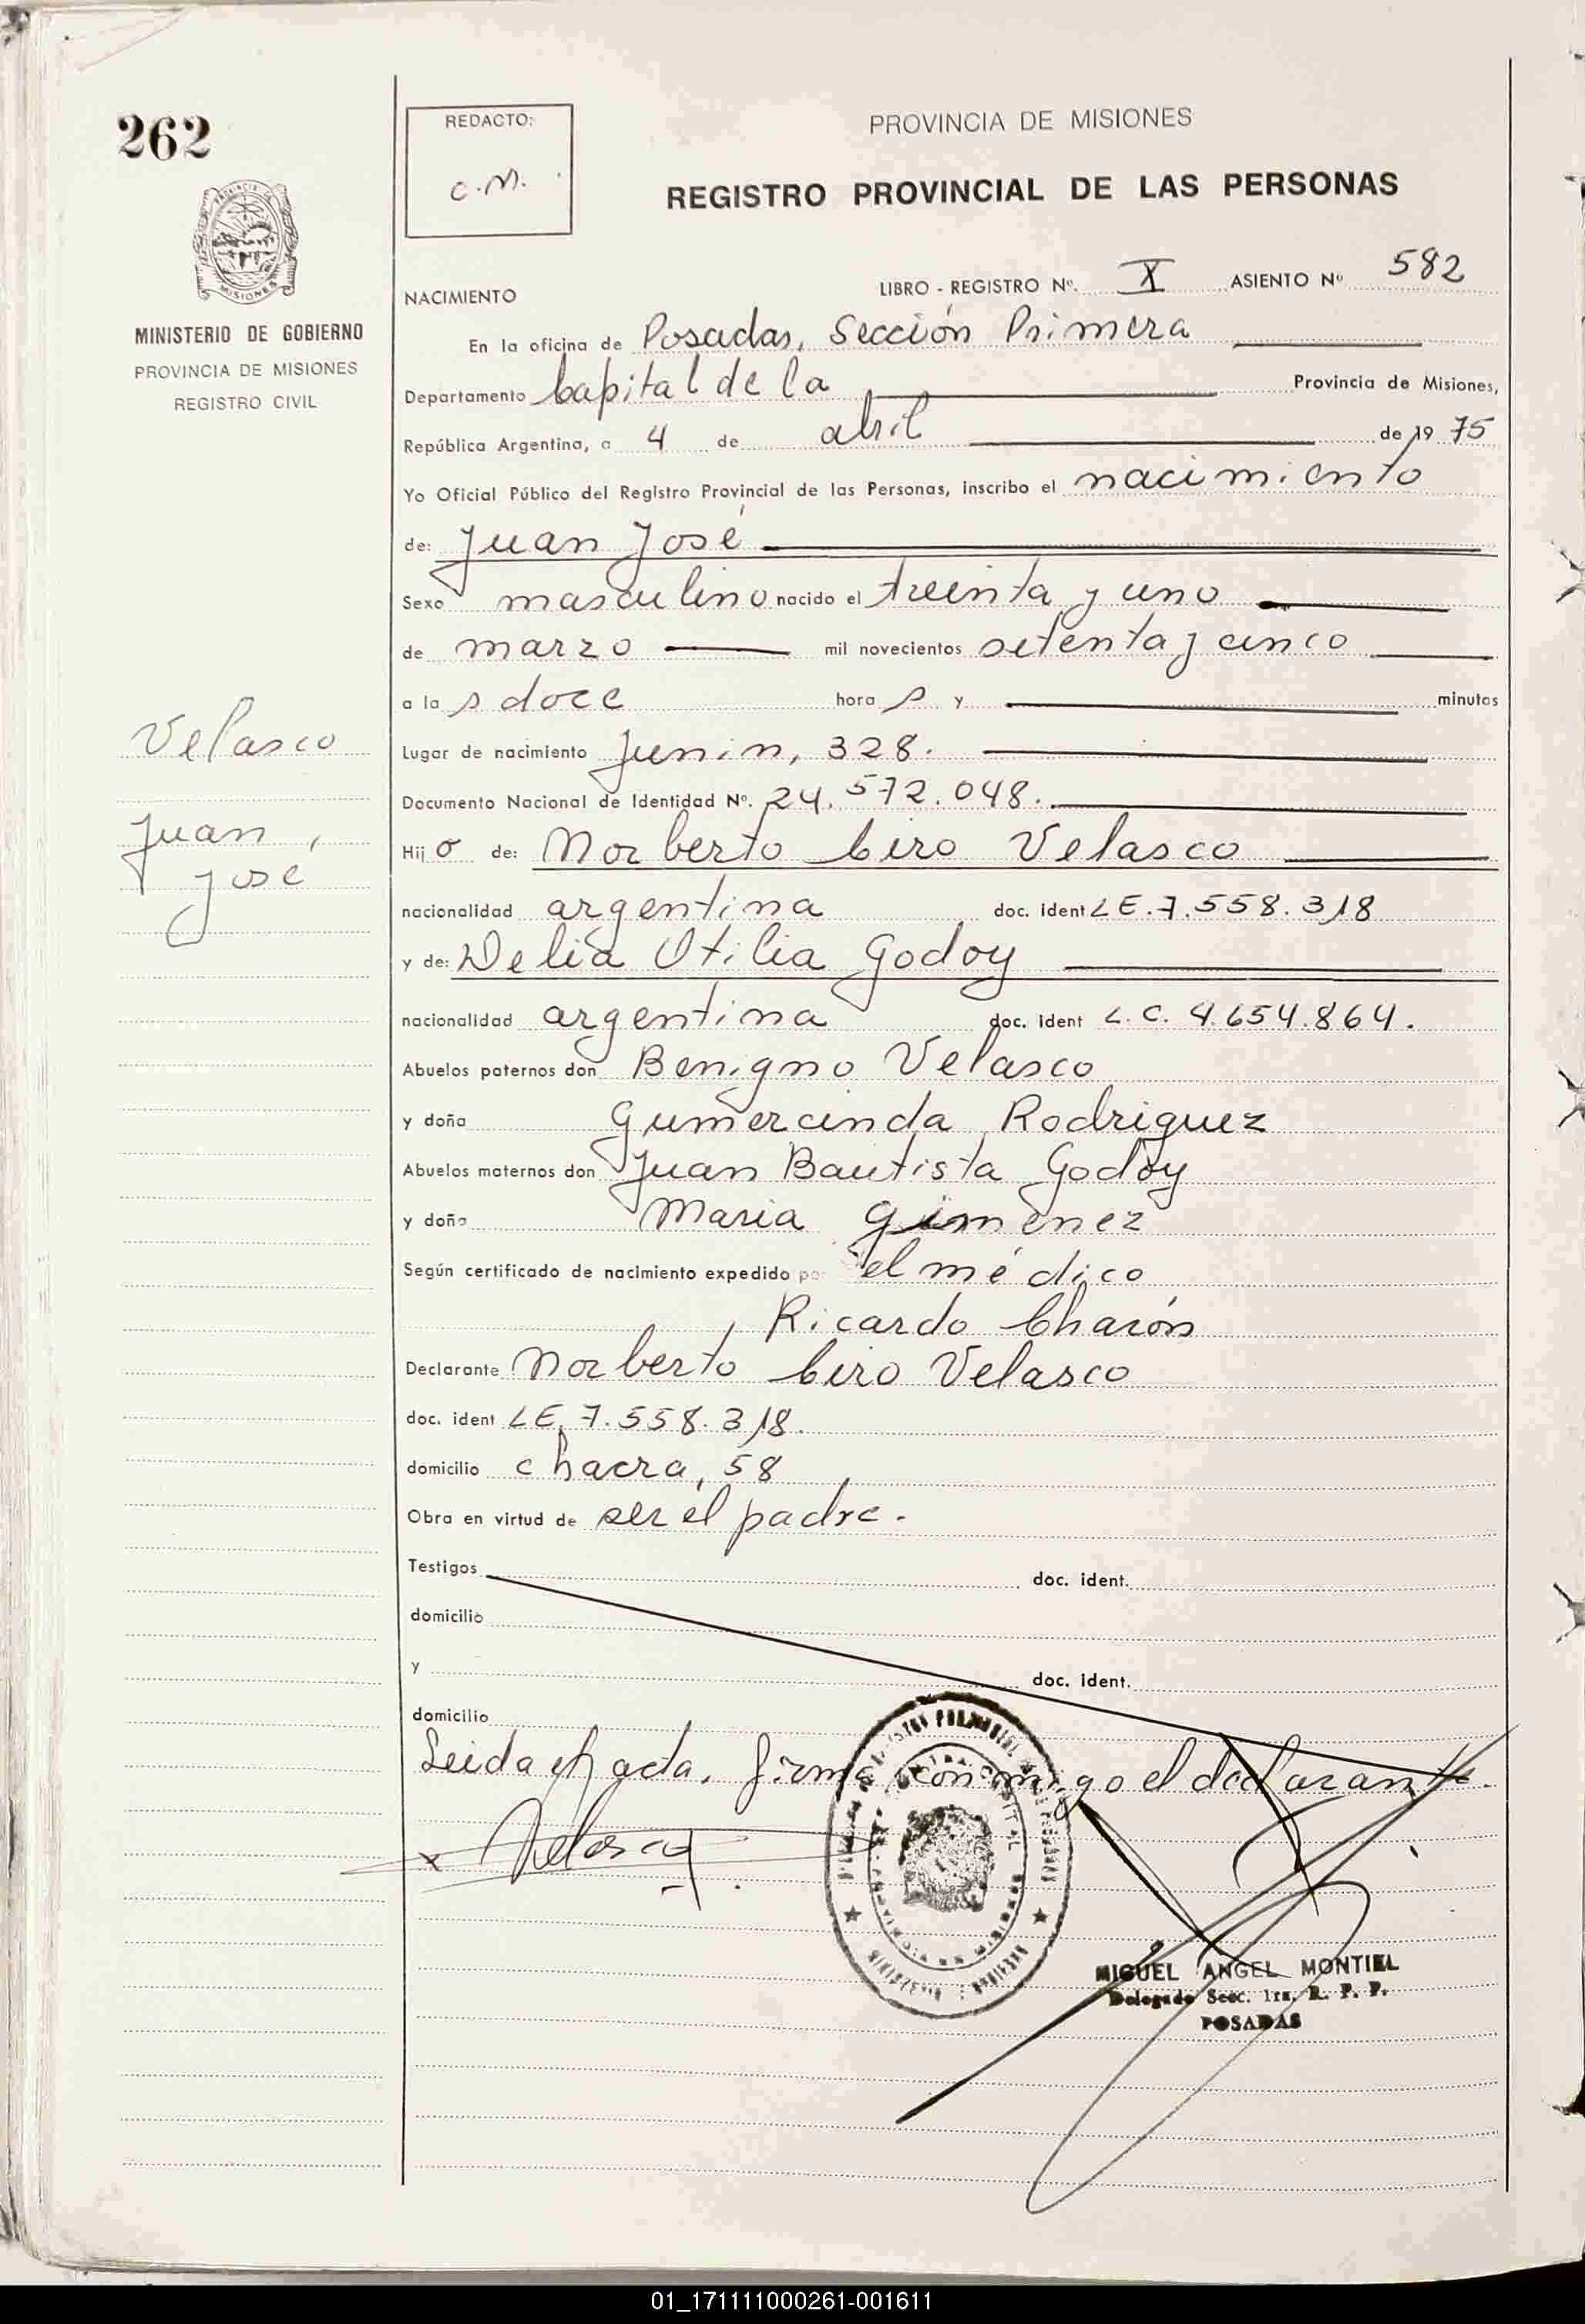 262
REDACTO:
C.M.
PROVINCIA DE MISIONES
REGISTRO PROVINCIAL DE LAS PERSONAS
MINISTERIO DE GOBIERNO
PROVINCIA DE MISIONES
REGISTRO CIVIL
NACIMIENTO
LIBRO - REGISTRO Nº. X ASIENTO Nº 582
En la oficina de Posadas, Sección Primera
Departamento Capital de la Provincia de Misiones,
República Argentina, a 4 de abril de 1975
Yo Oficial Público del Registro Provincial de las Personas, inscribo el nacimiento
de: Juan José
Sexo masculino nacido el treinta y uno
de marzo mil novecientos setenta y cinco
a las doce horas y minutos
Lugar de nacimiento Junin, 328.
Documento Nacional de Identidad Nº. 24.572.048.
Hijo de: Norberto Ciro Velasco
nacionalidad argentina doc. ident LE.7.558.318
y de: Delia Otilia Godoy
nacionalidad argentina doc. ident L.C. 4.654.864.
Abuelos paternos don Benigno Velasco
y doña Gumercinda Rodriguez
Abuelos maternos don Juan Bautista Godoy
y doña Maria Gimenez
Según certificado de nacimiento expedido por el médico
Ricardo Charón
Declarante Norberto Ciro Velasco
doc. ident LE, 7.558.318.
domicilio chacra, 58
Obra en virtud de ser el padre.
Testigos doc. ident.
domicilio
y doc. ident.
domicilio
Leida el acta, firma conmigo el declarante.
Velasco
Juan
José
x Velasco
MIGUEL ANGEL MONTIEL
Delegado Secc. 1ra. R. P. P.
POSADAS
01_171111000261-001611